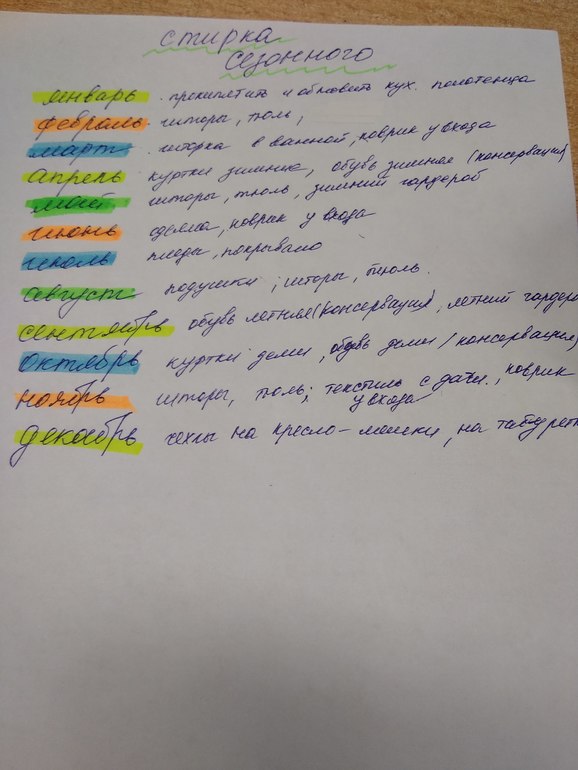 стирка
сезонного
январь . прокипятить и обновить кух. полотенца
февраль шторы, тюль,
март . шторка в ванной, коврик у входа
апрель куртки зимние, обувь зимняя (консервация)
май шторы, тюль, зимний гардероб
июнь коврик у входа
июль пледы, покрывало
август подушки, шторы, тюль.
сентябрь обувь летняя (консервация), летний
октябрь куртки деми, обувь деми (консервация)
ноябрь шторы, тюль; текстиль с дачи., коврик
у входа
декабрь чехлы на кресло-мешки, на